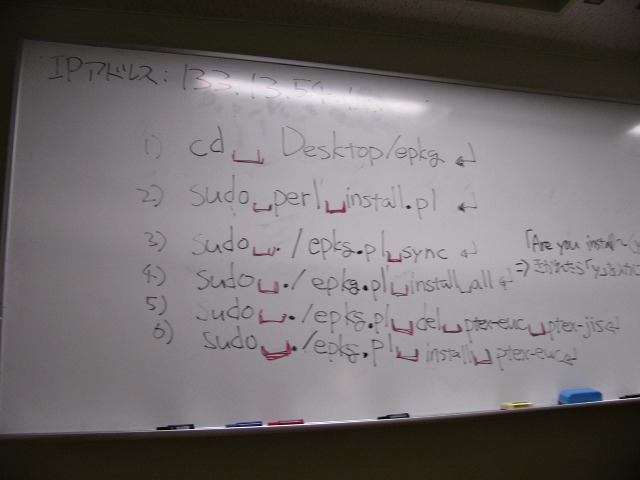 IPアドレス: 133.13.54.
1) cd␣ Desktop/epkg ↵
2) sudo␣perl␣install.pl ↵
3) sudo␣./epkg.pl␣sync ↵
「Are you install~
4) sudo␣./epkg.pl␣install␣all↵
⇒ きかれたら「y」を入力
5) sudo␣./epkg.pl␣del␣ptex-euc␣ptex-jis↵
6) sudo␣./epkg.pl␣install␣ptex-euc↵